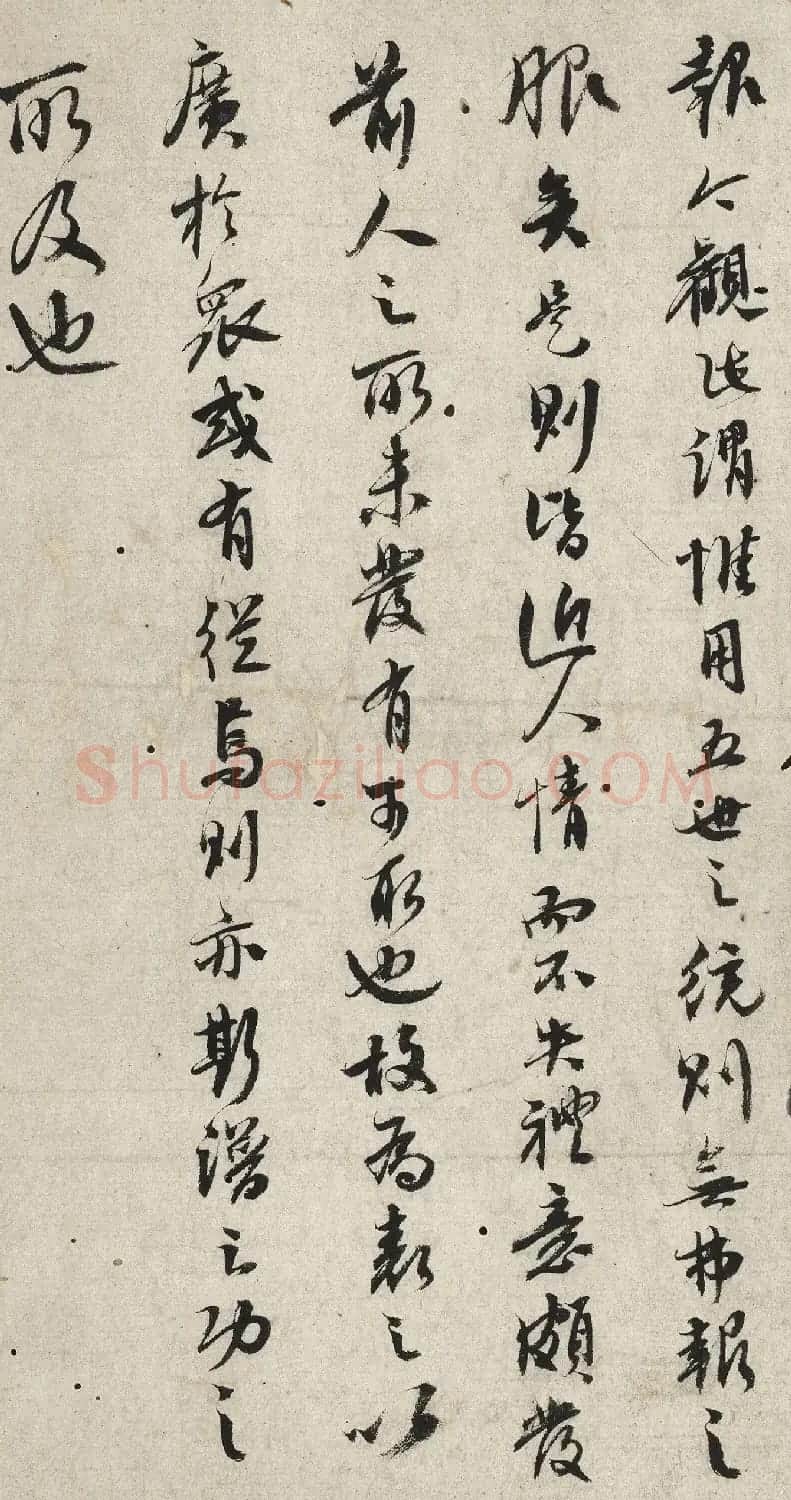 報今觀此謂惟用五世之統則無拂報之
服矣是則皆近人情而不失禮意頗發
前人之所未發有可取也故為表之以
廣於眾或有從焉則亦斯譜之功之
所及也
Shufaziliao.COM